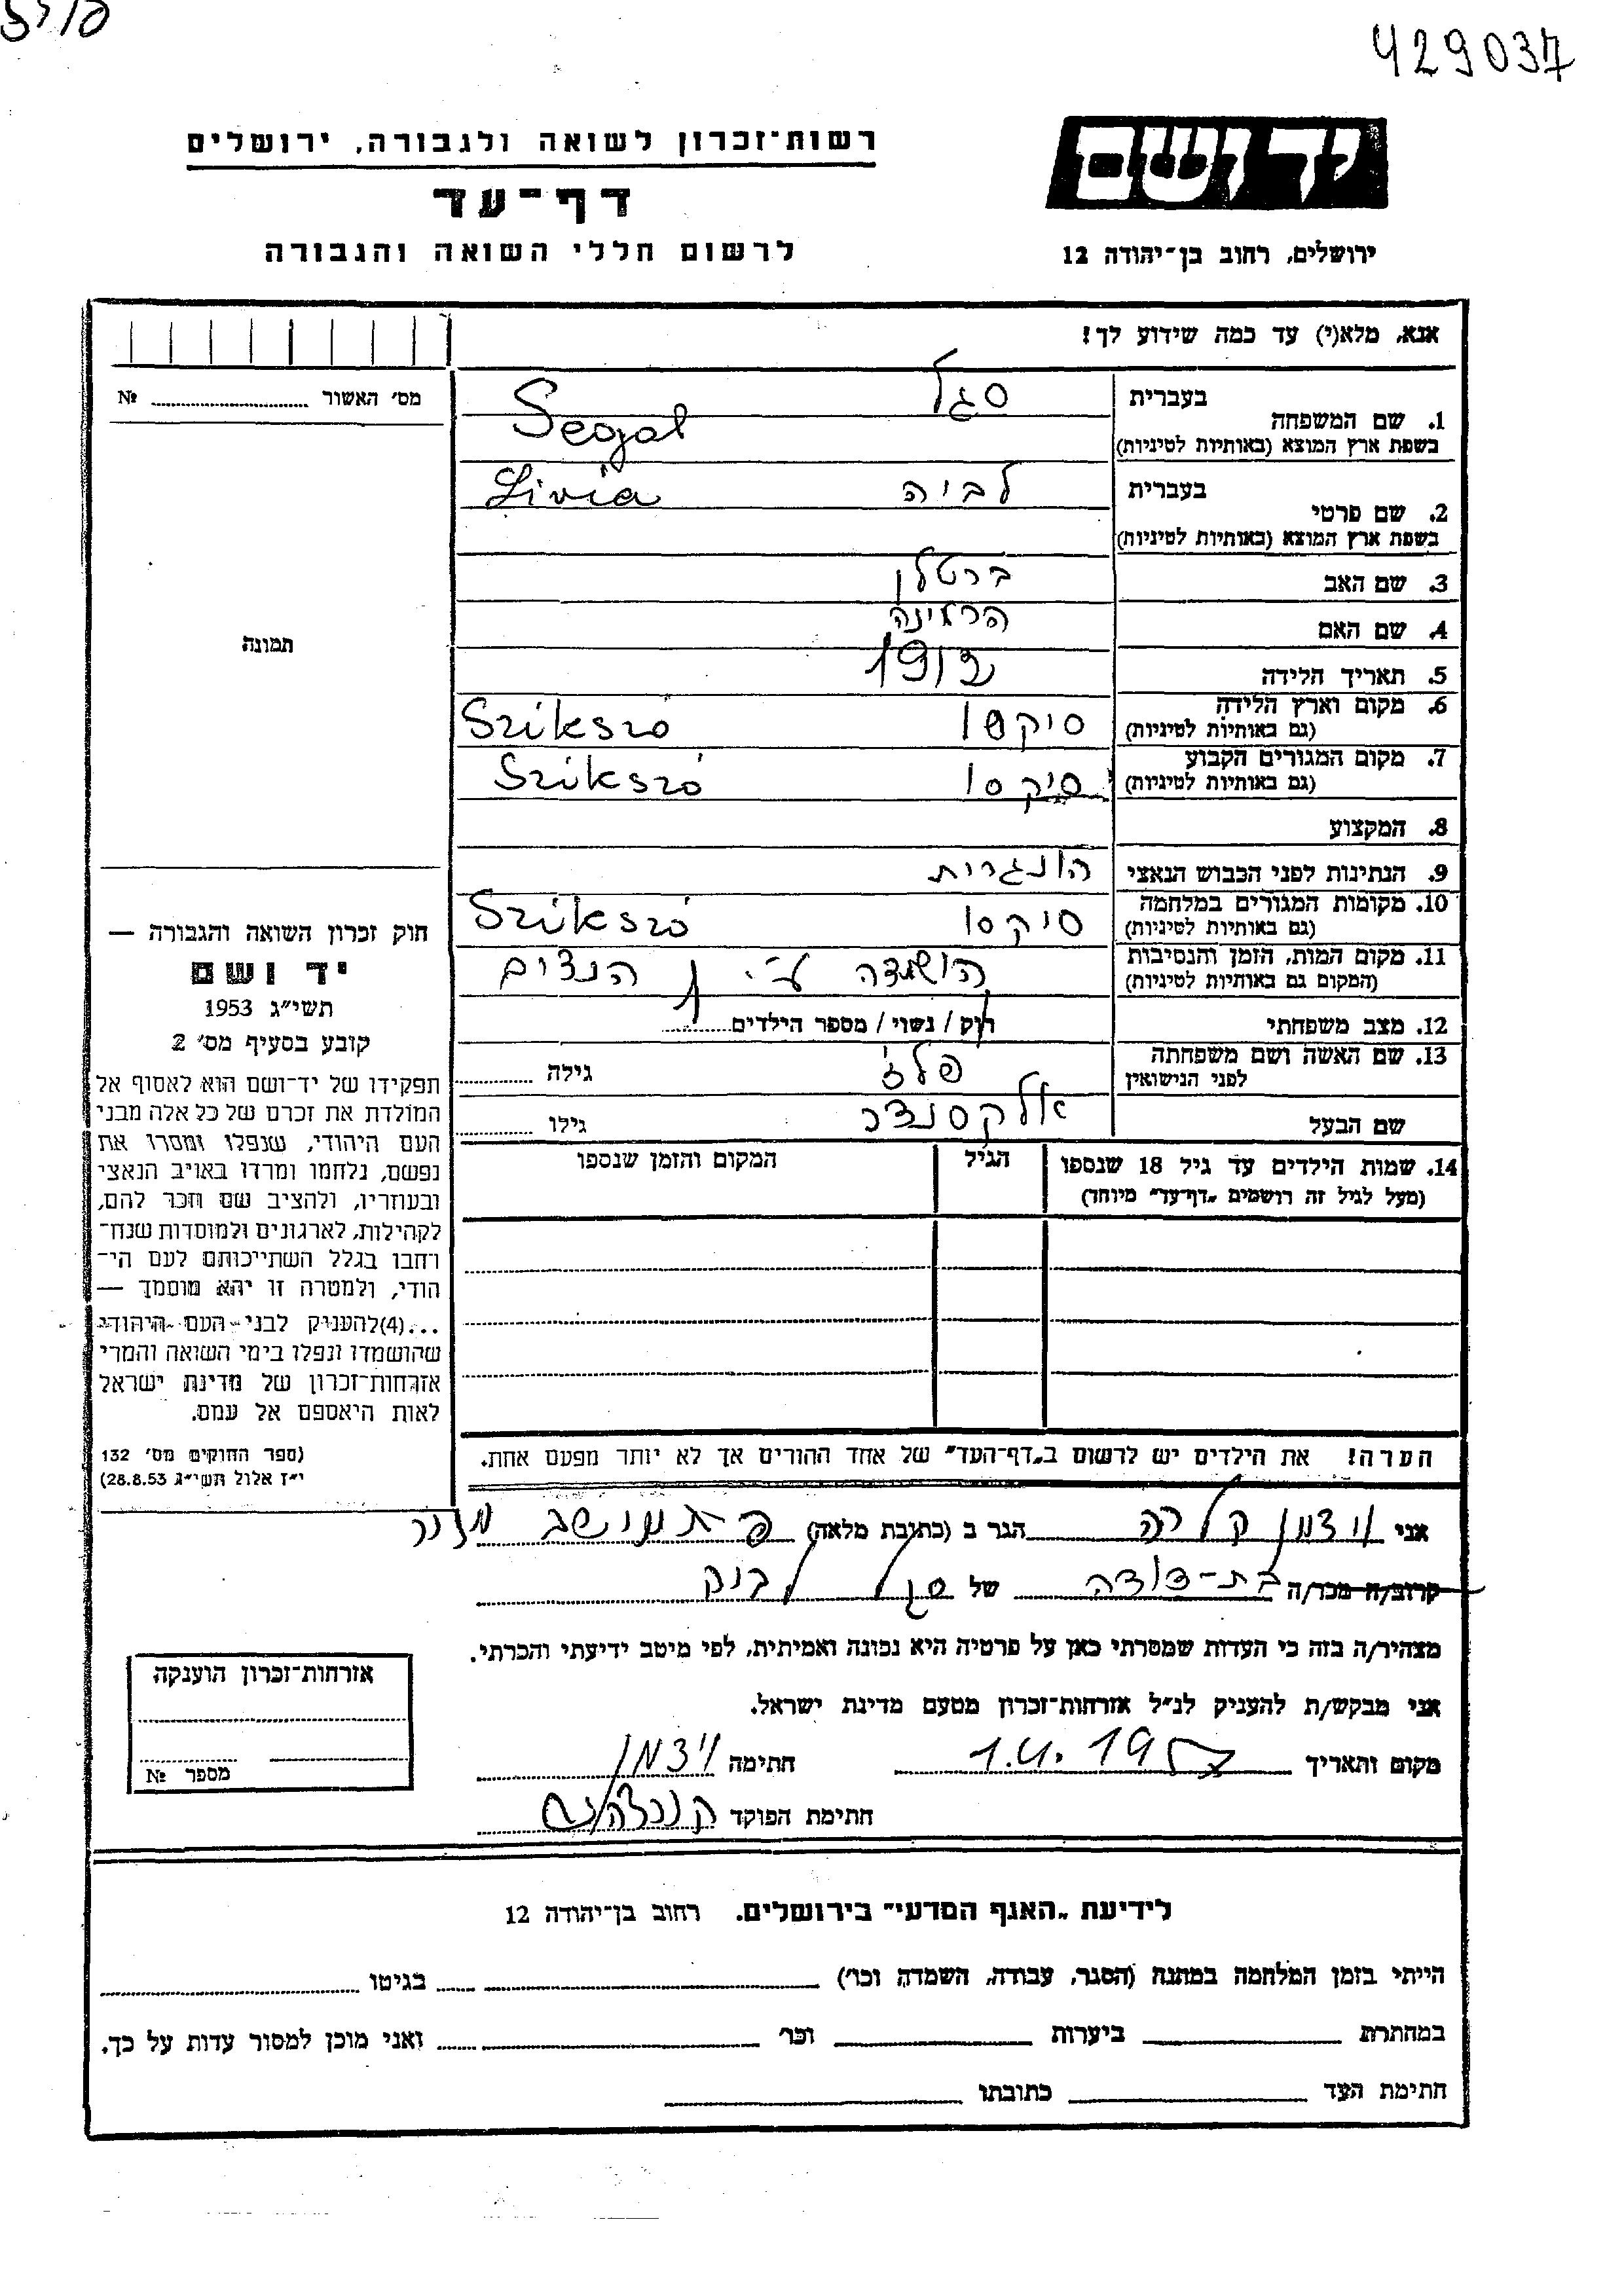 429037
יד ושם
ירושלים, רחוב בן־יהודה 12
רשות־זכרון לשואה ולגבורה, ירושלים
דף־עד
לרשום חללי השואה והגבורה
אנא, מלא(י) עד כמה שידוע לך!
מס׳ האשור № 
1. שם המשפחה
בעברית סגל
בשפת ארץ המוצא (באותיות לטיניות) Segal
2. שם פרטי
בעברית לביה Livia
בשפת ארץ המוצא (באותיות לטיניות)
3. שם האב ברטלן
4. שם האם
5. תאריך הלידה 1912
6. מקום וארץ הלידה
(גם באותיות לטיניות) Szikszó
7. מקום המגורים הקבוע
(גם באותיות לטיניות) סיקסו Szikszó
8. המקצוע
9. הנתינות לפני הכבוש הנאצי הונגרית
10. מקומות המגורים במלחמה
(גם באותיות לטיניות) סיקסו Szikszó
11. מקום המות, הזמן והנסיבות
(המקום גם באותיות לטיניות) הושמדה ע״י הנצים
12. מצב משפחתי רוק / נשוי / מספר הילדים
13. שם האשה ושם משפחתה
לפני הנישואין גילה
שם הבעל אלכסנדר גילו
14. שמות הילדים עד גיל 18 שנספו
(מעל לגיל זה רושמים „דף־עד״ מיוחד)
הגיל
המקום והזמן שנספו
הערה! את הילדים יש לרשום ב„דף־העד״ של אחד ההורים אך לא יותר מפעם אחת.
תמונה
חוק זכרון השואה והגבורה —
יד ושם
תשי״ג 1953
קובע בסעיף מס׳ 2
תפקידו של יד־ושם הוא לאסוף אל
המולדת את זכרם של כל אלה מבני
העם היהודי, שנפלו ומסרו את
נפשם, נלחמו ומרדו באויב הנאצי
ובעוזריו, ולהציב שם וזכר להם,
לקהילות, לארגונים ולמוסדות שנח־
רחבו בגלל השתייכותם לעם הי־
הודי, ולמטרה זו יהא מוסמך —
...(4)להעניק לבני־העם היהודי
שהושמדו ונפלו בימי השואה והמרי
אזרחות־זכרון של מדינת ישראל
לאות היאספם אל עמם.
(ספר החוקים מס׳ 132
י״ז אלול תשי״ג 28.8.53)
אני ויצמן קלרה הגר ב (כתובת מלאה) מושב מזור
קרוב/ה מכר/ה בת-דודה של סגל
מצהיר/ה בזה כי העדות שמסרתי כאן על פרטיה היא נכונה ואמיתית, לפי מיטב ידיעתי והכרתי.
אני מבקש/ת להעניק לנ״ל אזרחות־זכרון מטעם מדינת ישראל.
מקום ותאריך חתימה ויצמן
חתימת הפוקד
אזרחות־זכרון הוענקה
מספר №
לידיעת „האגף המדעי״ בירושלים. רחוב בן־יהודה 12
הייתי בזמן המלחמה במחנה (הסגר, עבודה, השמדה וכו׳) בגיטו
במחתרת ביערות וכו׳ ואני מוכן למסור עדות על כך.
חתימת העד כתובתו